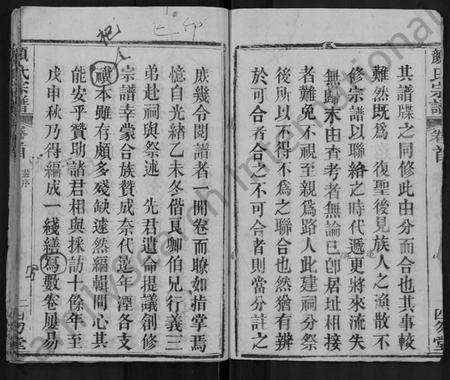 顏氏宗譜
卷首
四勿堂
其譜牒之同修此由分而合也其事較
難然既為 復聖後見族人之渙散不
修宗譜以聯絡之時代遞更將來流失
無歸末由查考者無論已卽居址相接
者難免不視至親為路人此建祠分祭
後所以不得不為之聯合也然猶有辨
於可合者合之不可合者則當分註之
庶幾令閱譜者一開卷而瞭如指掌焉
憶自光緒乙未冬偕
卿伯兄行義三
弟赴祠與祭述 先君遺命提議創修
宗譜幸蒙合族贊成奈代遠年湮各支
本雖有頗多殘缺遽然編輯問心其
能安乎贊助諸君相與採訪十餘年至
戊申秋乃得編成一綫繕寫數卷屢易
顏氏宗譜
卷首
序
二
四勿堂